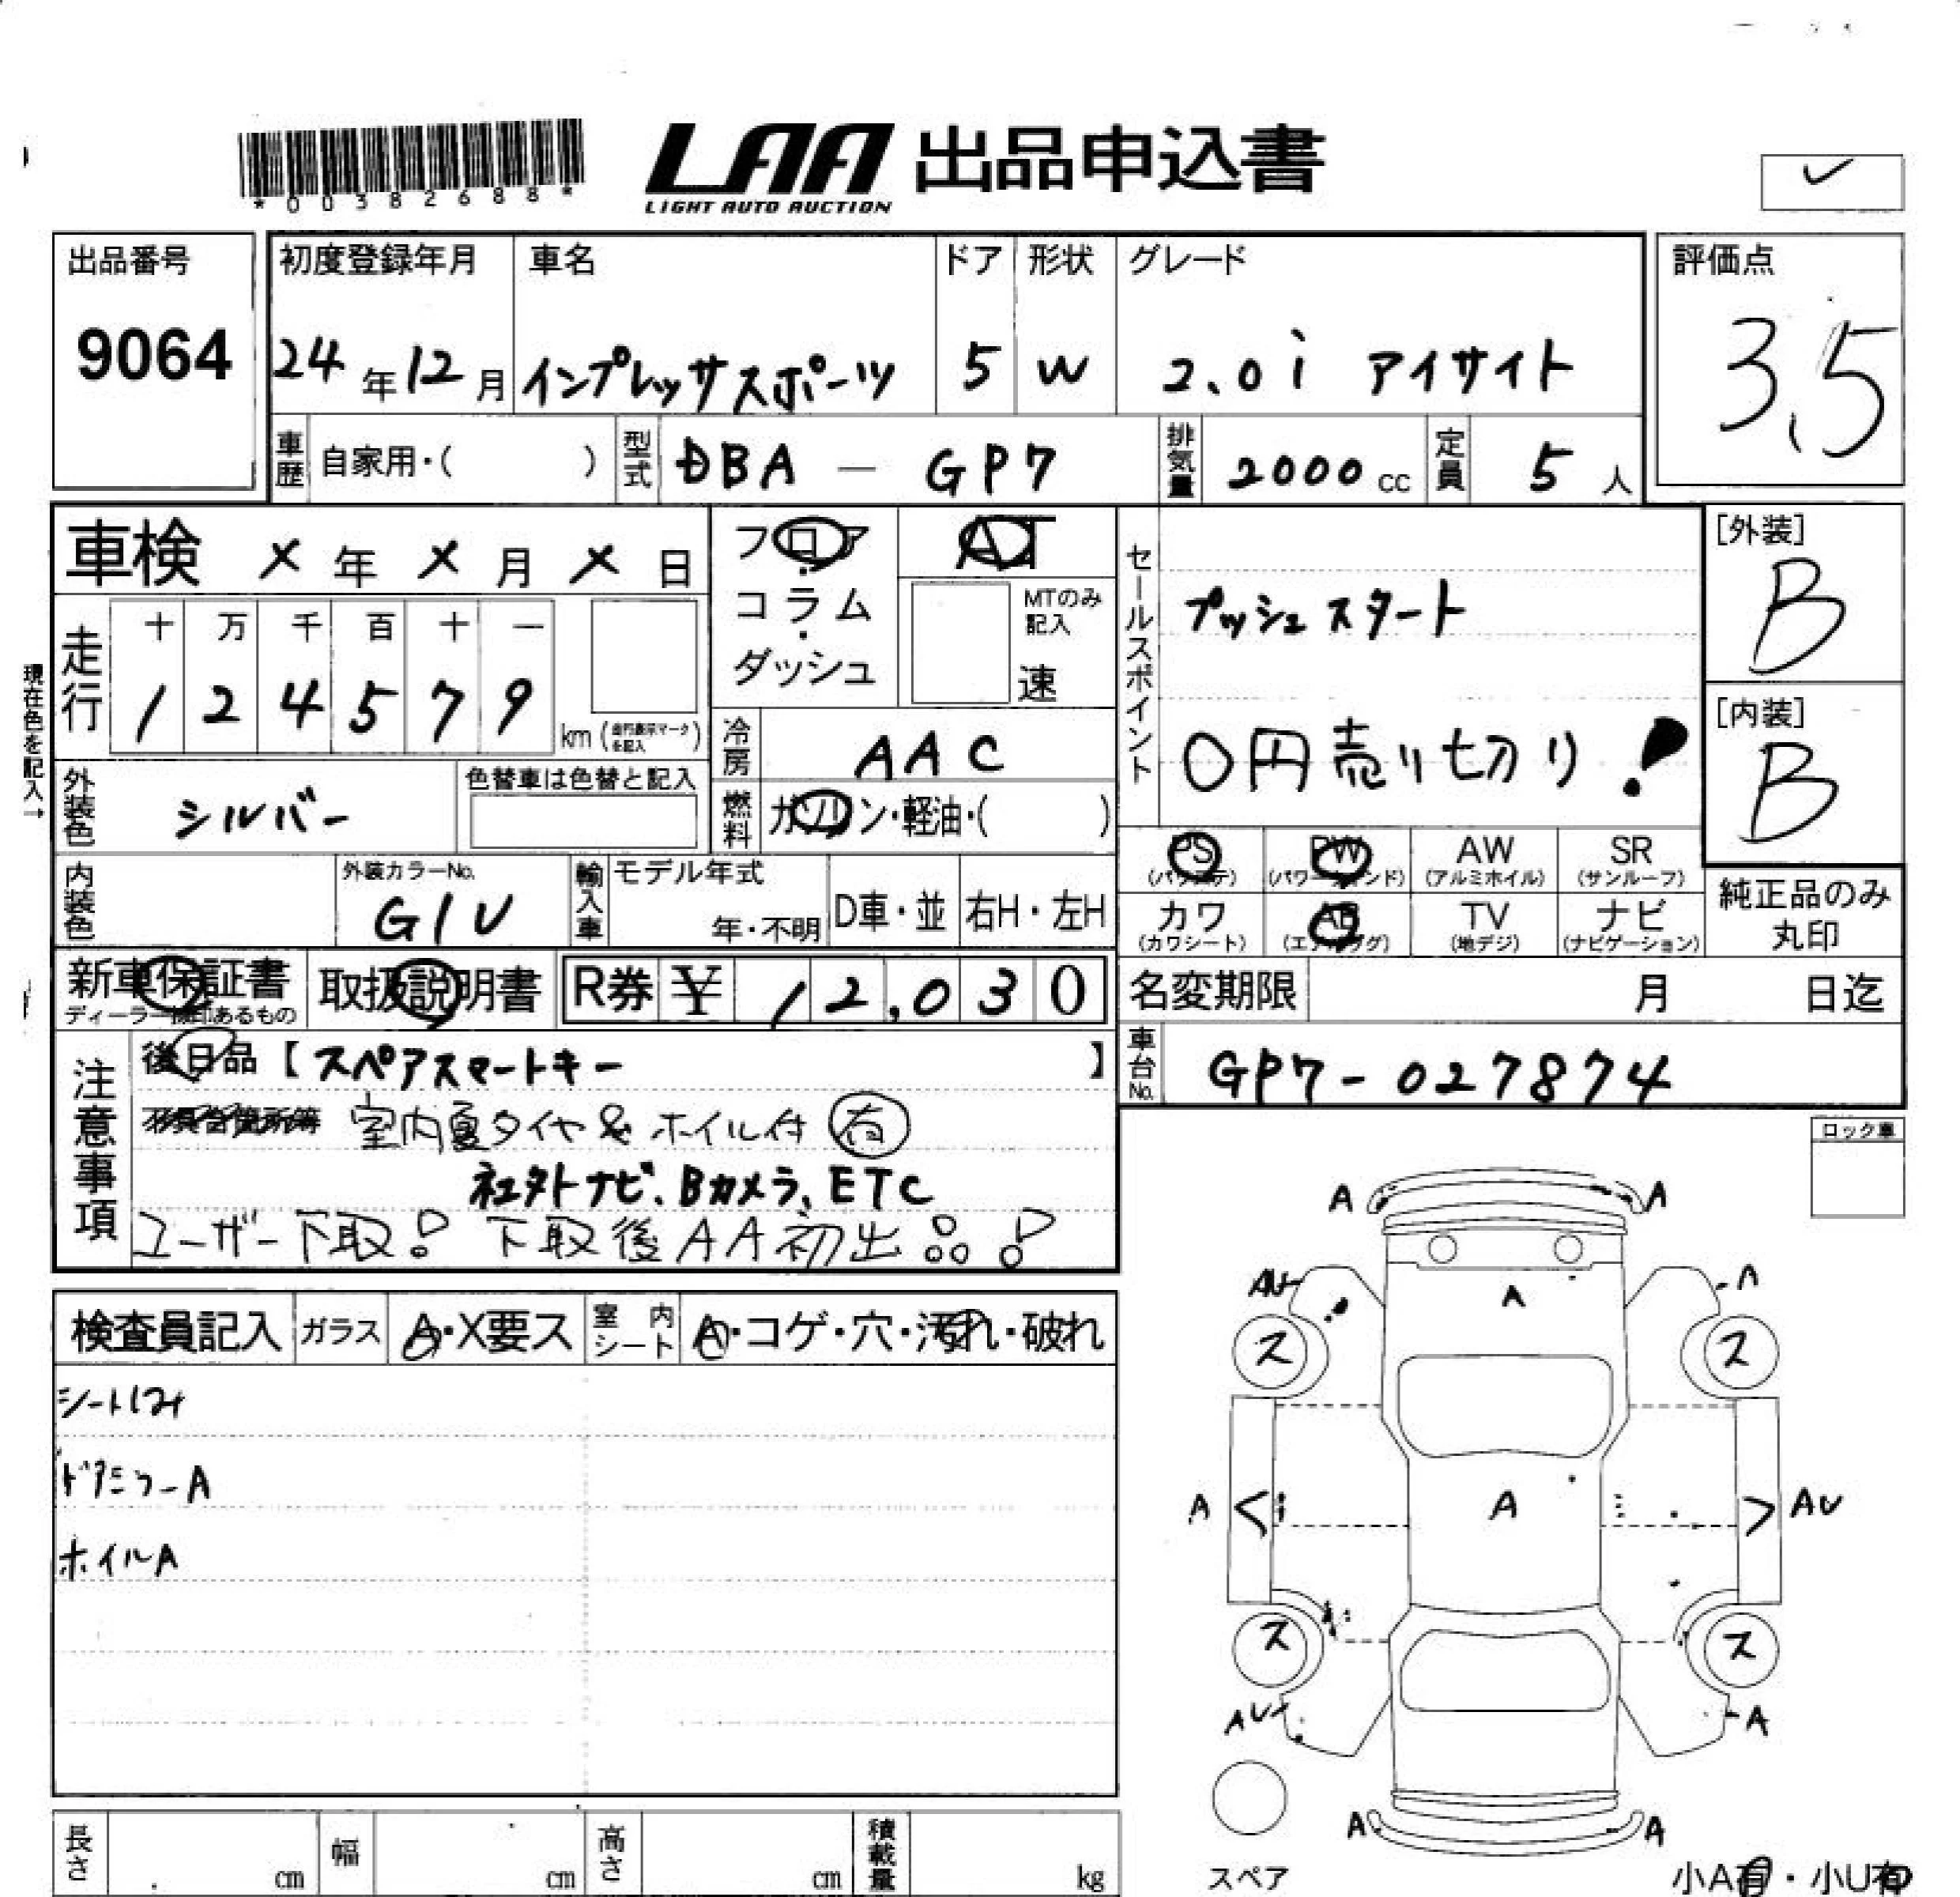 *00382688*
LAA 出品申込書
LIGHT AUTO AUCTION
出品番号 初度登録年月 車名 ドア 形状 グレード 評価点
9064 24年12月 インプレッサスポーツ 5 W 2.0i アイサイト 3.5
車歴 自家用・( ) 型式 DBA - GP7 排気量 2000cc 定員 5人
車検 X年X月X日 フロア・コラム・ダッシュ AT
MTのみ記入 速
走行 十万千百十一
124579 km
セールスポイント プッシュスタート
0円売り切り!
[外装] B
[内装] B
現在色を記入→
外装色 シルバー 色替車は色替と記入
冷房 AAC
燃料 ガソリン・軽油・( )
PS (パワステ) PW (パワーウィンド) AW (アルミホイル) SR (サンルーフ)
カワ (カワシート) AB (エアバッグ) TV (地デジ) ナビ (ナビゲーション)
純正品のみ丸印
内装色 外装カラーNo. G1U 輸入車 モデル年式 年・不明 D車・並 右H・左H
新車保証書 取扱説明書 R券 ¥12,030 名変期限 月 日迄
ディーラー検印あるもの
車台No. GP7-027874
注意事項 後日品【スペアスマートキー】
不具合箇所等 室内夏タイヤ&ホイル付 有
社外ナビ、Bカメラ、ETC
ユーザー下取! 下取後AA初出!!
ロック車
検査員記入 ガラス A・X要ス 室内シート A・コゲ・穴・汚れ・破れ
ドアミラーA
ホイルA
A A
AU A A
ス ス
A A AU
ス ス
AU A
A A
スペア
小A有・小U有
長さ cm 幅 cm 高さ cm 積載量 kg